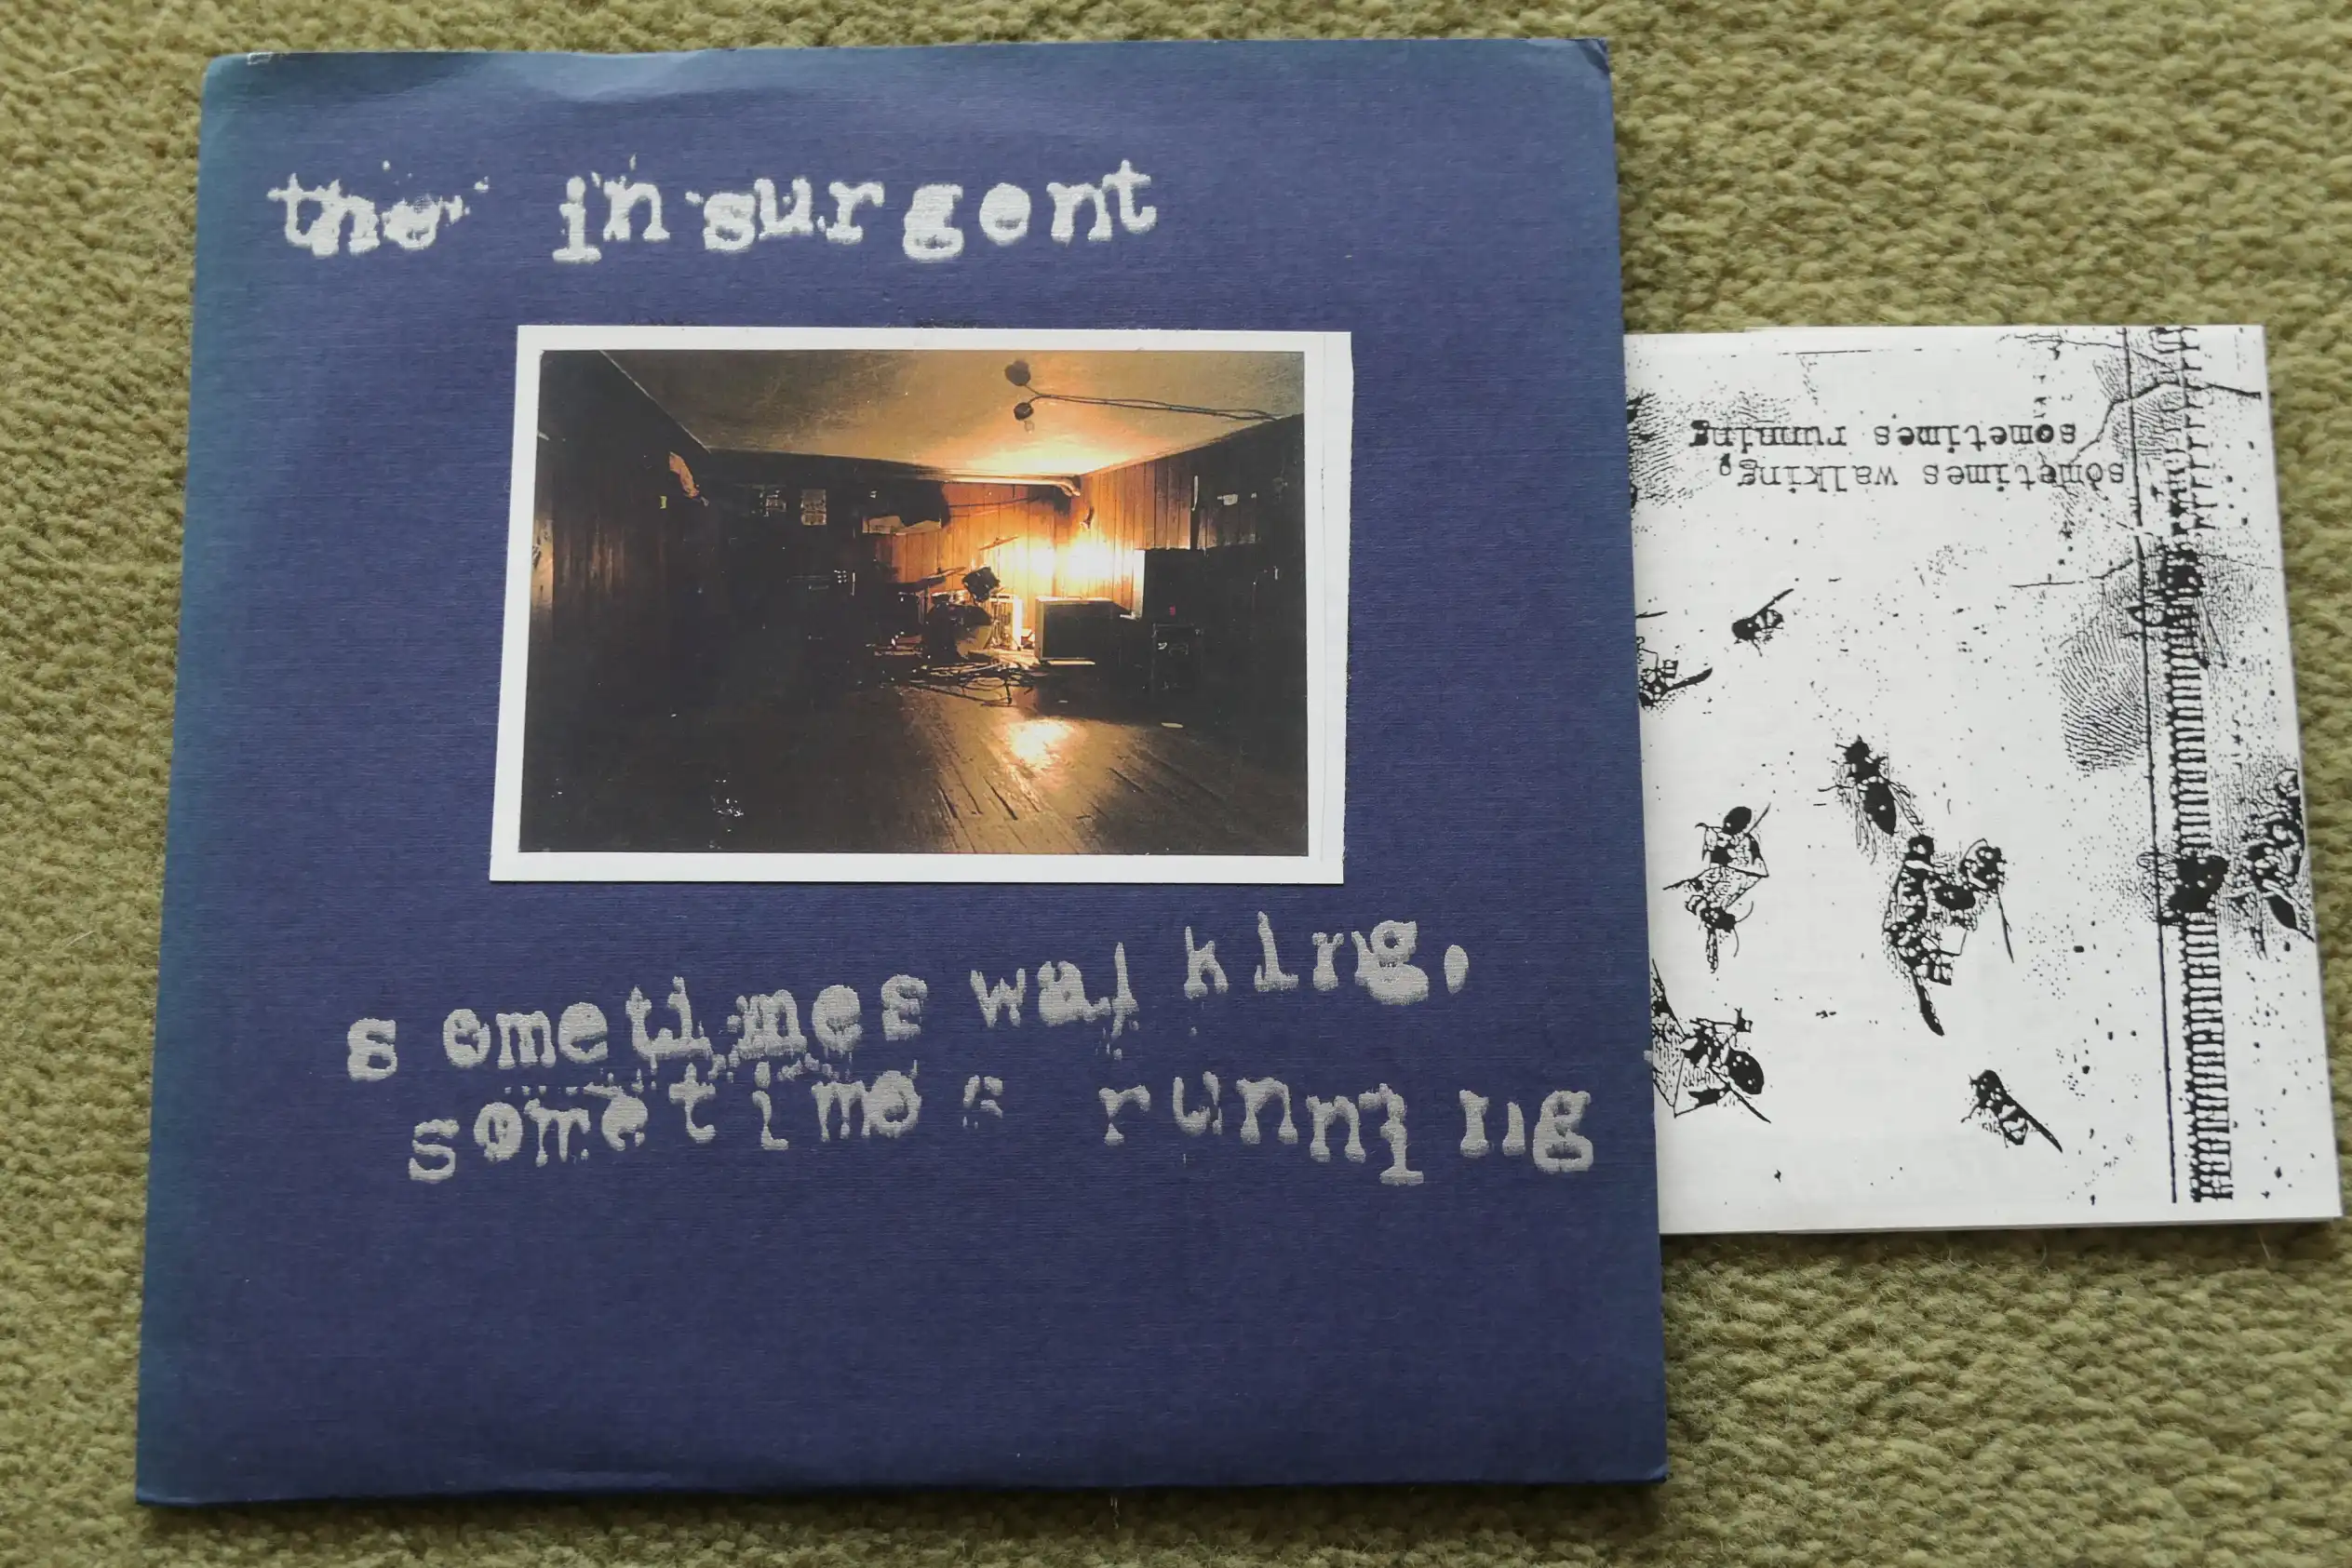 the insurgent
sometimes walking,
sometimes running
sometimes walking,
sometimes running